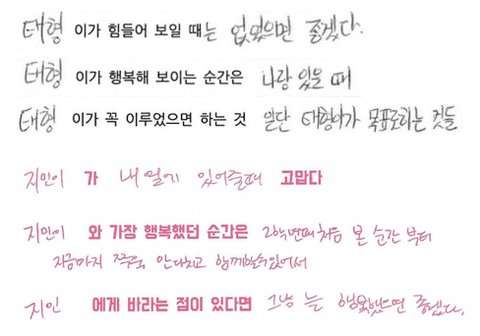 태형 이가 힘들어 보일 때는 없었으면 좋겠다.
태형 이가 행복해 보이는 순간은 나랑 있을 때
태형 이가 꼭 이루었으면 하는 것 일단 태형이가 목표로하는 것들
지민이 가 내 옆에 있어줄때 고맙다
지민이 와 가장 행복했던 순간은 처음 본 순간 부터
지금까지 쭈욱 안다치고 함께 있어서
지민 에게 바라는 점이 있다면 그냥 늘 행복했으면 좋겠다.